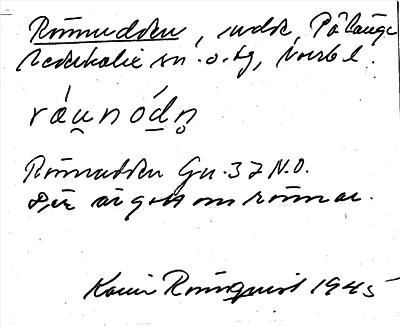 Rönnudden, udde, Pålänge
Nederkalix sn. o. tg, Norrb l.
ráu̯nódn̥
Rönnudden Gu. 37 N.O.
Där är gott om rönnar.
Karin Rönnquist 1945